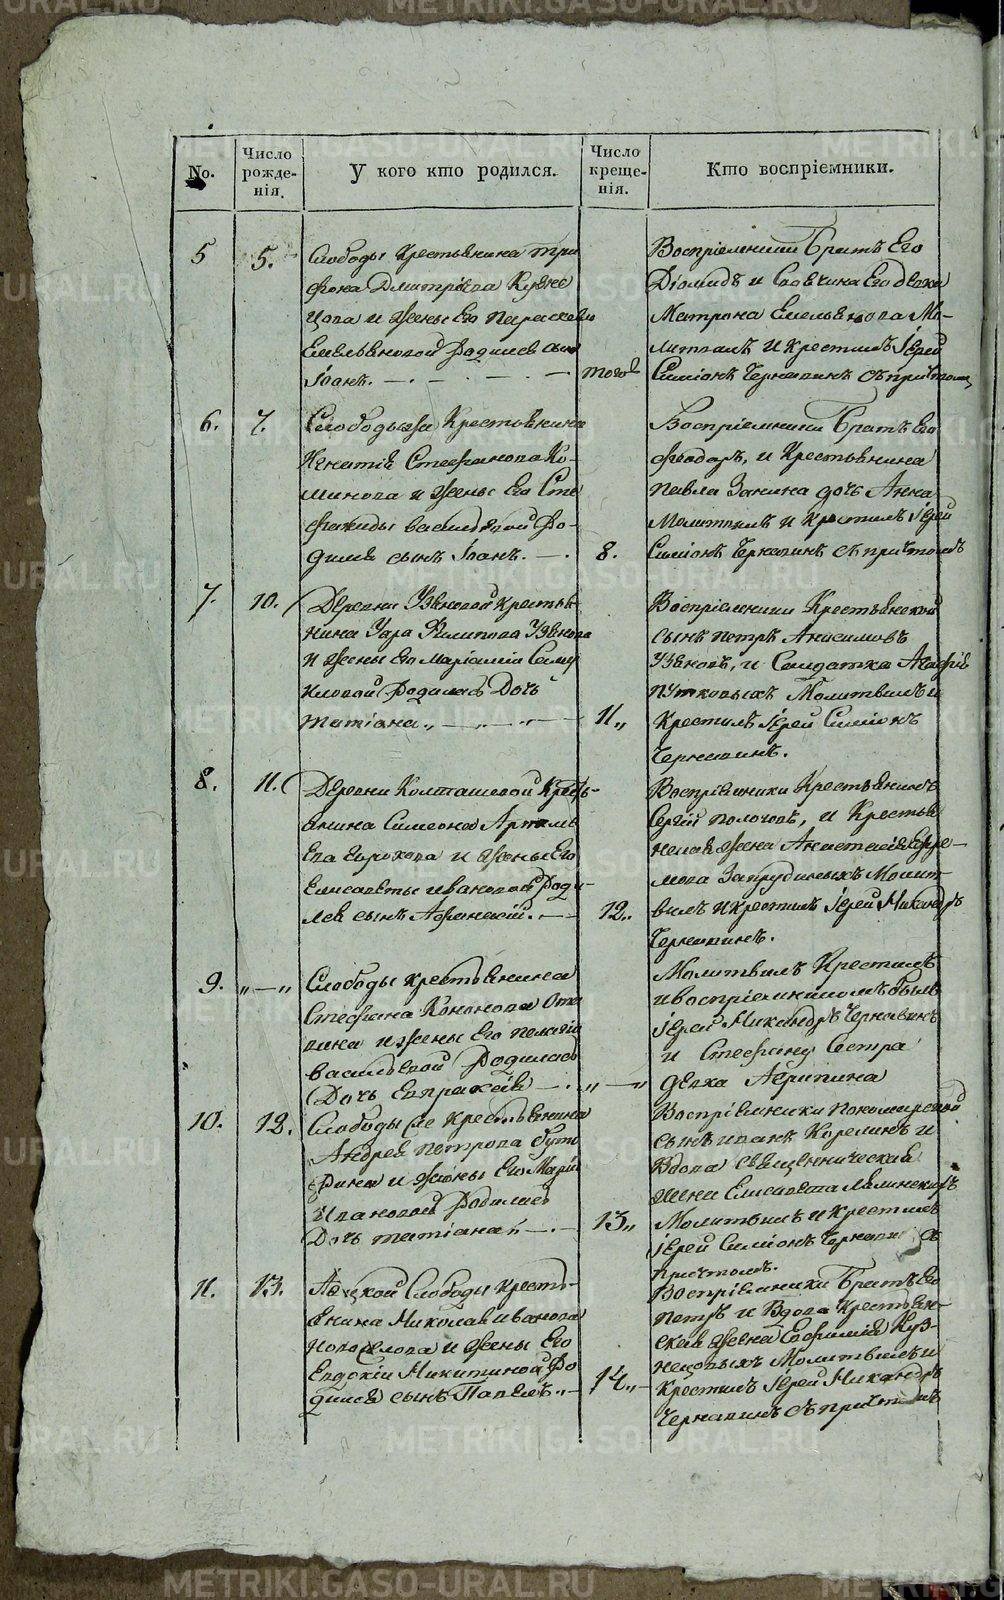 No.
Число рожде-нія.
У кого кто родился.
Число креще-нія.
Кто воспріемники.
5
5.
Слободы Крестьянина Три
фона Дмитріева Кузне
цова и жены Его Параскевы
Емельяновой Родился сынъ
Іоанъ.
того
Воспріемники Братъ Его
Діомидъ и
Матрона Емельянова Мо-
литвилъ и крестилъ Іерей
Симіонъ Чернавинъ съ причтомъ
6.
7.
Слободы Крестьянина
Игнатія Стефанова Ко-
минова и жены Его Сте
фаниды Васильевой Ро-
дился сынъ Іоанъ.
8.
Воспріемники Братъ Его
Феодоръ, и Крестьянина
Павла Занина дочь Анна
Молитвилъ и крестилъ Іерей
Симіонъ Чернавинъ съ причтомъ
7.
10.
Деревни Узяновой крестья
нина Уара Филипова Узянова
и жены Его Маріаміи Саму
иловой Родилась Дочь
Татіана
11
Воспріемники Крестьянской
сынъ Петръ Анисимовъ
Узяновъ, и Солдатка Агафія
Путковыхъ Молитвилъ и
Крестилъ Іерей Симіонъ
Чернавинъ.
8.
11.
Деревни Колташевой Кресть-
янина Симеона Артемь
ева и жены Его
Елисаветы Ивановой Роди-
лся сынъ Афанасій.
12
Воспріемники Крестьянинъ
Сергій и Крестья
нская жена Анастасія Ефре-
мова Запрудиныхъ Молит-
вилъ и крестилъ Іерей Никандръ
Чернавинъ.
9.
„—„
Слободы крестьянина
Стефана Кононова
и жены Его Пелагіи
Васильевой Родилась
Дочь Евпраксія
„—„
Молитвилъ Крестилъ
и воспріемникомъ былъ
Іерей Никандръ Чернавинъ
и Стефану Сестра
девка Агрипина
10.
12.
Слободы Крестьянина
Андрея Петрова
и жены Его Маріи
Ивановой Родилась
Дочь Татіана
13
Воспріемники Пономарской
сынъ Иванъ Корелинъ и
Вдова священническая
жена Елисавета
Молитвилъ и крестилъ
Іерей Симіонъ Чернавинъ съ
причтомъ.
11.
13.
Слободы кресть-
янина Николая Иванова
Новоселова и жены Его
Евдокіи Никитиной Ро
дился сынъ Павелъ
14
Воспріемники Братъ Его
Петръ и Вдова Крестьян-
ская жена Евфимія Куз-
нецовыхъ Молитвилъ и
Крестилъ Іерей Никандръ
Чернавинъ съ причтомъ
METRIKI.GASO-URAL.RU